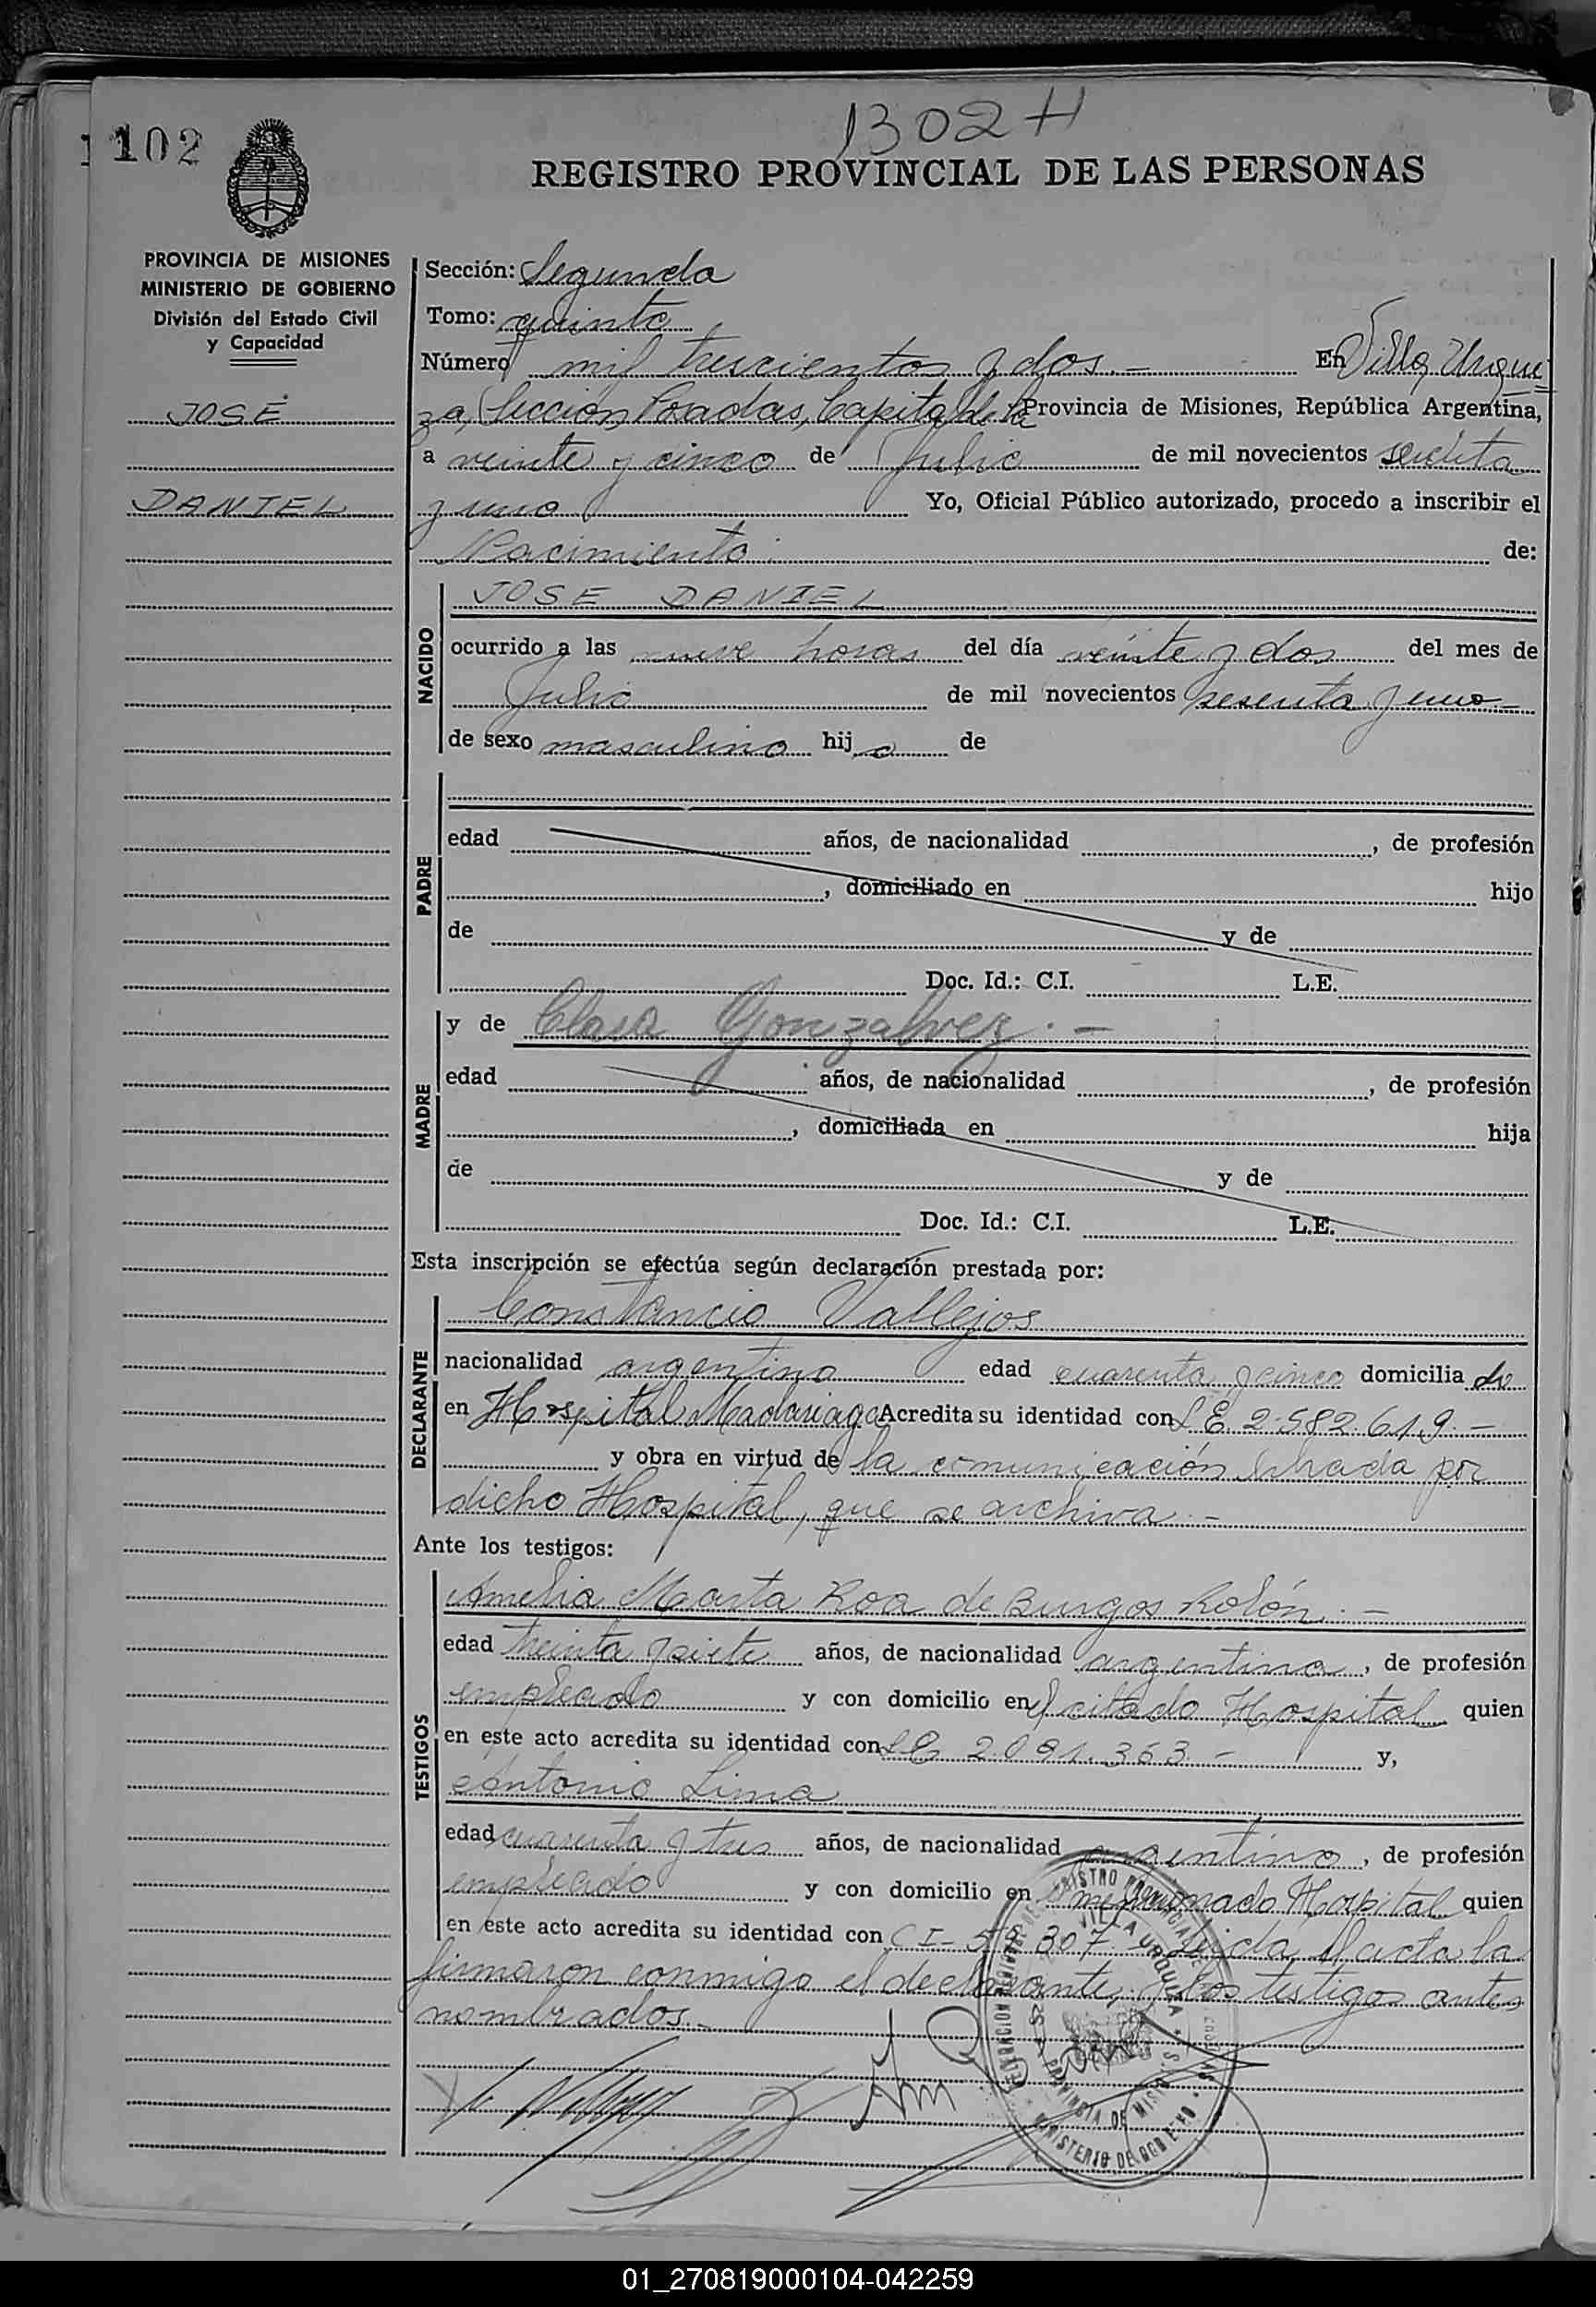 1302 H
102
REGISTRO PROVINCIAL DE LAS PERSONAS
PROVINCIA DE MISIONES
MINISTERIO DE GOBIERNO
División del Estado Civil
y Capacidad
JOSÉ
DANIEL
Sección: Segunda
Tomo: quinto
Número mil trescientos y dos.- En Villa Urqui=
za, Sección Posadas, Capital de la Provincia de Misiones, República Argentina,
a veinte y cinco de Julio de mil novecientos sesenta
y uno Yo, Oficial Público autorizado, procedo a inscribir el
Nacimiento de:
NACIDO
JOSE DANIEL
ocurrido a las nueve horas del día veinte y dos del mes de
Julio de mil novecientos sesenta y uno-
de sexo masculino hijo de
PADRE
edad años, de nacionalidad , de profesión
, domiciliado en hijo
de y de
Doc. Id.: C.I. L.E.
MADRE
y de Clara Gonzalvez.-
edad años, de nacionalidad , de profesión
, domiciliada en hija
de y de
Doc. Id.: C.I. L.E.
Esta inscripción se efectúa según declaración prestada por:
DECLARANTE
Constancio Vallejos
nacionalidad argentino edad cuarenta y cinco domiciliado
en Hospital Madariaga Acredita su identidad con L E. 2.582.619.-
y obra en virtud de la comunicación librada por
dicho Hospital, que se archiva.-
Ante los testigos:
TESTIGOS
Amelia Marta Roa de Burgos Rolón.-
edad treinta y siete años, de nacionalidad argentina, de profesión
empleado y con domicilio en el citado Hospital quien
en este acto acredita su identidad con LC 2.091.363.- y,
Antonio Lima
edad cuarenta y tres años, de nacionalidad argentino, de profesión
empleado y con domicilio en mencionado Hospital quien
en este acto acredita su identidad con CI- 58.307.- Leida el acta la
firmaron conmigo el declarante, y los testigos antes
nombrados.-
VILLA URQUIZA
PROVINCIA DE MISIONES
MINISTERIO DE GOBIERNO
01_270819000104-042259